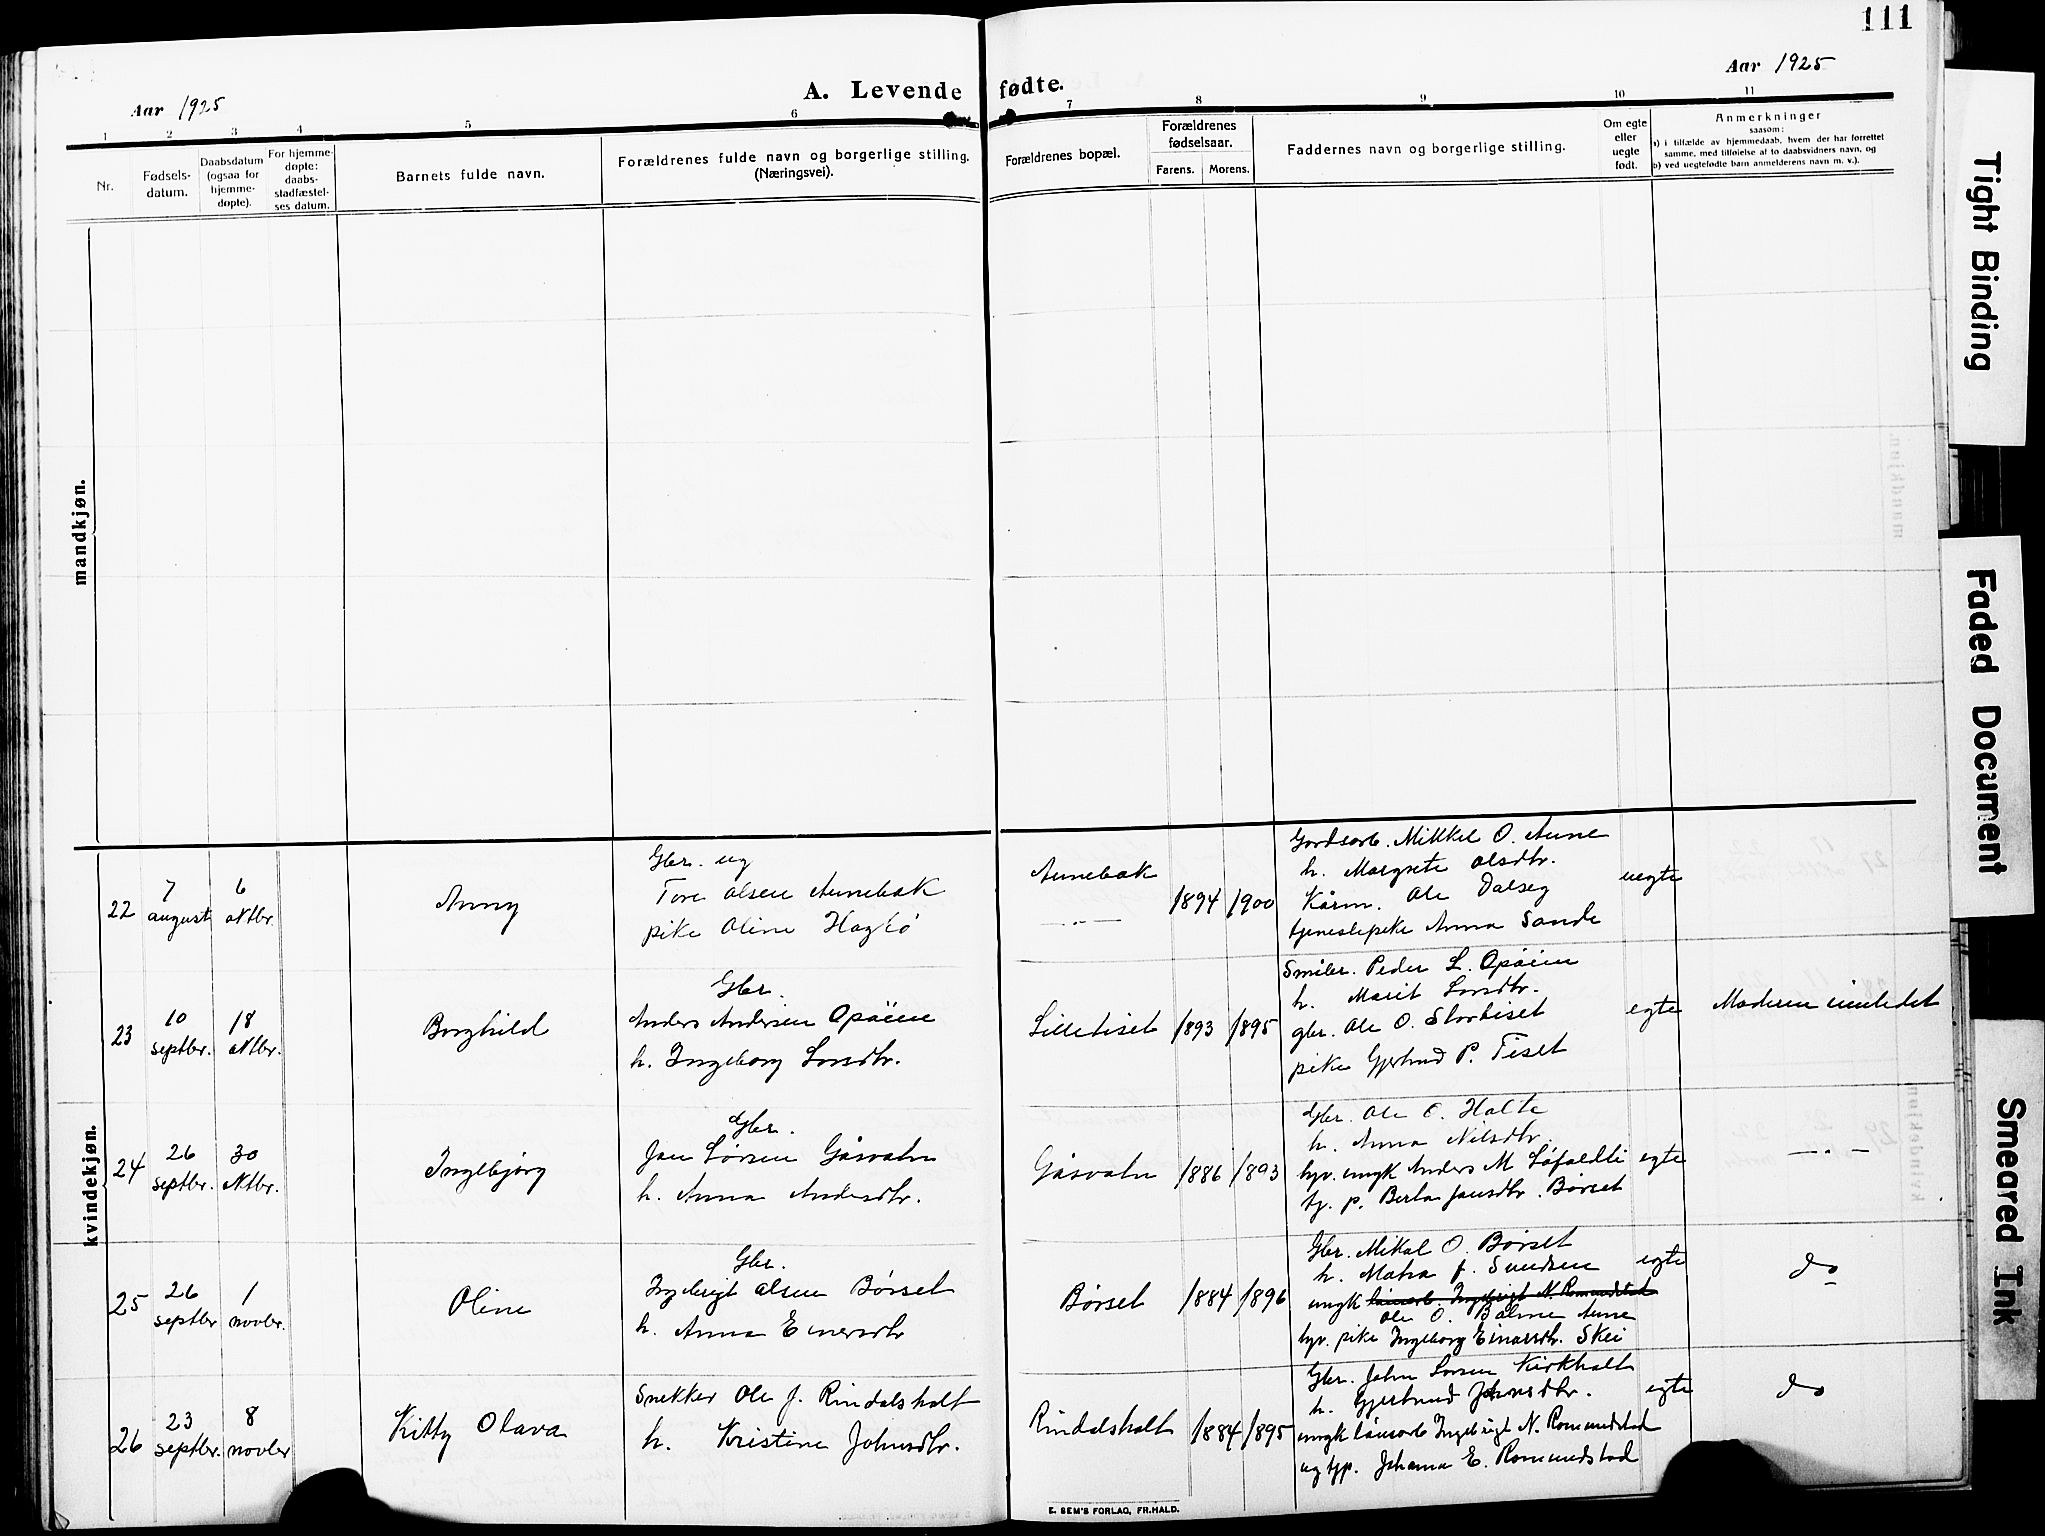 111
Aar 1925
A. Levende fødte.
Aar 1925
1 2 3 4 5 6 7 8 9 10 11
Nr.
Fødsels-
datum.
Daabsdatum
(ogsaa for
hjemme-
døpte).
For hjemme-
døpte:
daabs-
stadfæstel-
ses datum.
Barnets fulde navn.
Forældrenes fulde navn og borgerlige stilling.
(Næringsvei).
Forældrenes bopæl.
Forældrenes
fødselsaar.
Farens. Morens.
Faddernes navn og borgerlige stilling.
Om egte
eller
uegte
født.
Anmerkninger
saasom:
a) i tilfælde av hjemmedaab, hvem der har forrettet
samme, med tilføielse af to daabsvidners navn, og
b) ved uegtefødte barn anmelderens navn m. v.).
mandkjøn.
kvindekjøn.
22
7
august
6
oktbr.
Anny
Gbr. ug
Tore Olsen Aunebak
pike Oline Hagbø
Aunebak
—„—
1894 1900
Gardsarb. Mikkel O. Aune
h. Margrete Olsdtr.
Kårm. Ole Dalseg
tjenestepike Anna Sande
uegte
23
10
septbr.
18
oktbr.
Borghild
Gbr.
Anders Andersen Opøien
h. Ingeborg Larsdtr.
Lilletiset
1893 1895
Peder L. Opøien
h. Marit Larsdtr.
gbr. Ole O. Stortiset
pike Gjertrud P. Tiset
egte
Moderen innledet
24
26
septbr.
30
oktbr.
Ingebjørg
Gbr.
Jon Larsen Gåsvatn
h. Anna Andersdtr.
Gåsvatn
1886 1893
Gbr. Ole O. Halte
h. Anna Nilsdtr.
hjv. ungk Anders M Løfaldli
tj. p. Berta Jonsdtr. Børset
egte
—„—
25
26
septbr
1
novbr.
Oline
Gbr.
Ingebrigt Olsen Børset
h. Anna Einarsdtr
Børset
1884 1896
Gbr. Mikal O. Børset
h. Marta J. Svendsen
ungk Ingebrigt N. Romundstad
Ole O. Bolme Aune
hjv. pike Ingeborg Einarsdtr. Skei
egte
do
26
23
septbr.
8
novbr
Kitty Olava
Snekker Ole J. Rindalsholt
h. Kristine Johnsdtr.
Rindalsholt
1884 1895
Gbr. John Larsen Kirkholt
h. Gjertrud Johnsdtr.
ungk Ingebrigt N. Romundstad
ug hjp. Johanna E. Romundstad
egte
do
E. SEM'S FORLAG, FR.HALD.
Tight Binding
Faded Document
Smeared Ink